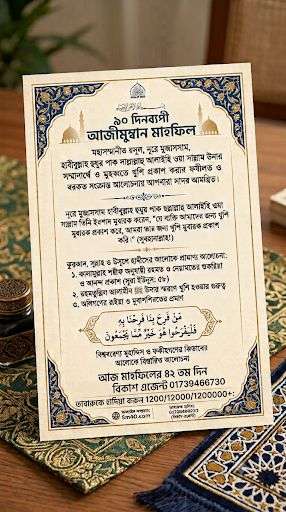 ৯০ দিনব্যাপী
আজীমুশ্বান মাহফিল
মহাসম্মানীত রসুল, নূরে মুজাসসাম,
হাবীবুল্লাহ হুযুর পাক সাল্লাল্লাহু আলাইহি ওয়া সাল্লাম উনার
সম্মানার্থে ও মুহব্বতে খুশি প্রকাশ করার ফযীলত ও
বরকত সংক্রান্ত আলোচনায় আপনারা সাদর আমন্ত্রিত।
নূরে মুজাসসাম হাবীবুল্লাহ হুযুর পাক ছল্লাল্লাহু আলাইহি ওয়া
সাল্লাম তিনি ইরশাদ মুবারক করেন, "যে ব্যক্তি আমাদের জন্য খুশি
মুবারক প্রকাশ করে, আমরা তার জন্য খুশি মুবারক প্রকাশ
করি।" (সুবহানাল্লাহ!)
কুরআন, সুন্নাহ ও উসূলে হাদীসের আলোকে প্রামাণ্য আলোচনা:
১. কালামুল্লাহ শরীফ অনুযায়ী রহমত ও নেয়ামতের শুকরিয়া
ও আনন্দ প্রকাশ (সূরা ইউনুস: ৫৮)
২. রহমতুল্লিল আলামীন ﷺ উনার স্মরণে খুশি হওয়ার গুরুত্ব
৩. অলিগণের রঈয়া ও মুবাশশিরাতের প্রমাণ
مَنْ فَرِحَ بِنَا فَرِحْنَا بِهِ
فَلْيَفْرَحُوا هُوَ خَيْرٌ مِّمَّا يَجْمَعُونَ
বিশ্ববরেণ্য মুহাদ্দিস ও ফকীহগণের কিতাবের
আলোকে বিস্তারিত আলোচনা
আজ মাহফিলের ৪২ তম দিন
বিকাশ এজেন্ট 01739466730
তাবারুকে হাদিয়া করুন 1200/12000/1200000+:
sm40.com